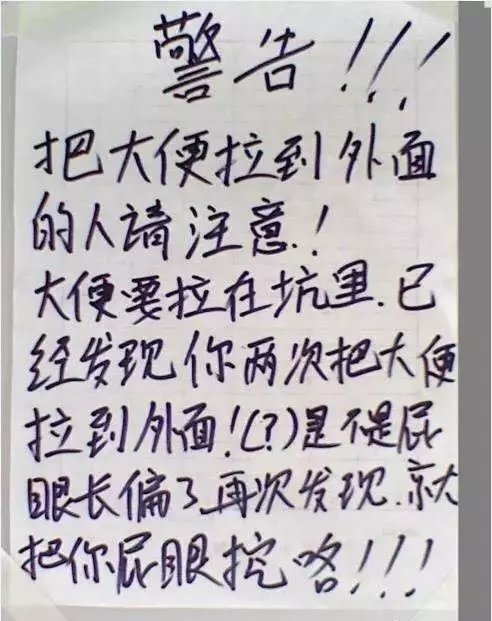 警告!!!
把大便拉到外面
的人請注意!
大便要拉在坑里.已
经发现你两次把大便
拉到外面!(?)是不是屁
眼长偏了再次发现.就
把你屁眼挖咯!!!